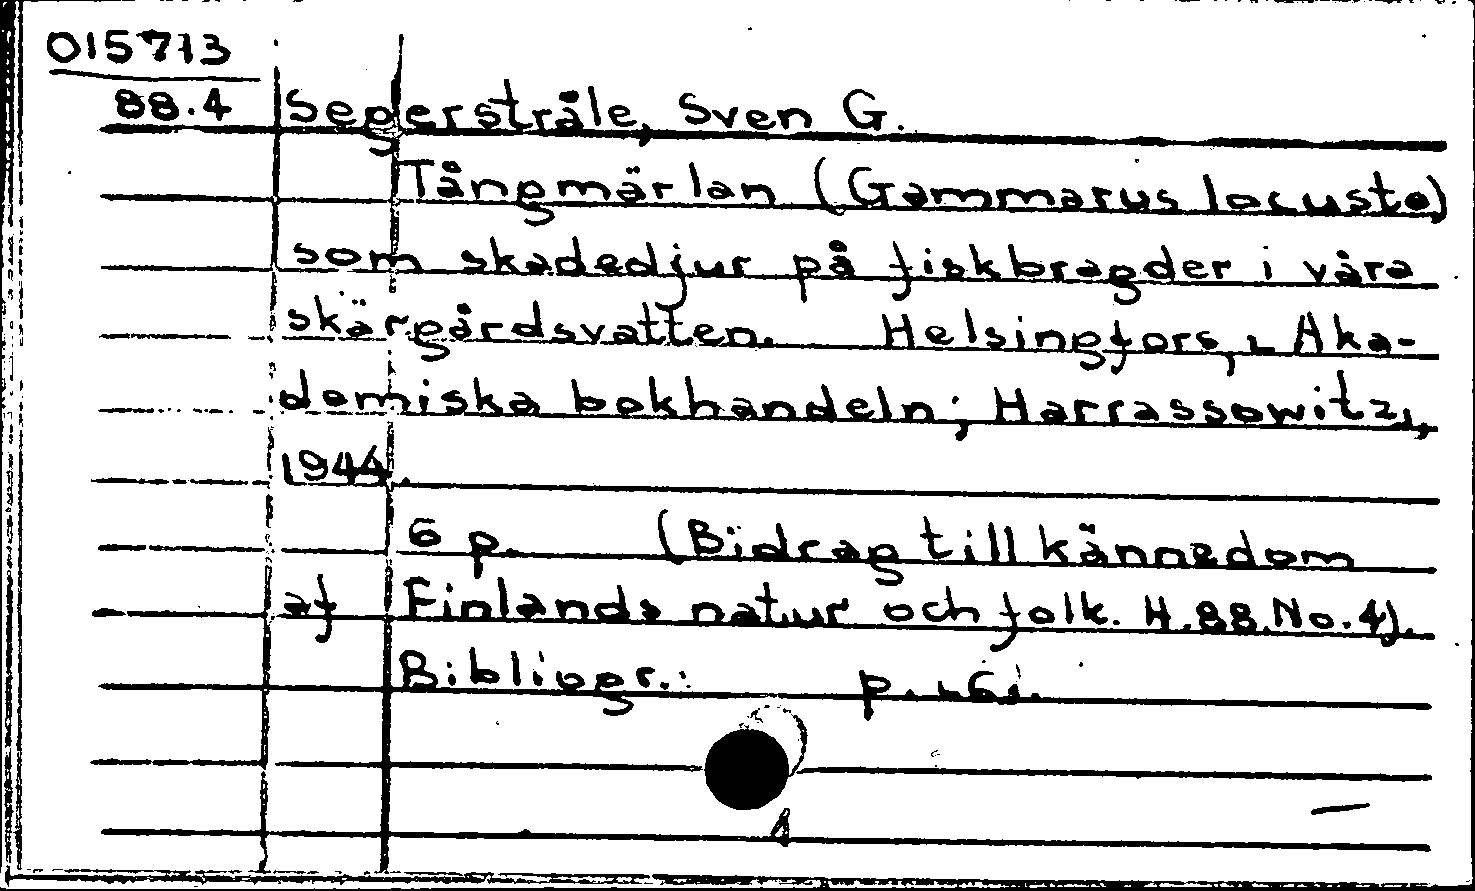 015713
88.4 Segerstråle, Sven G.
Tångmärlan (Gammarus locusta)
som skadedjur på fiskbragder i våra
skärgårdsvatten. Helsingfors, Aka-
demiska bokhandeln; Harrassowitz,
1944.
6 p. (Bidrag till kännedom
af Finlands natur och folk. H.88.No.4).
Bibliogr.: p.